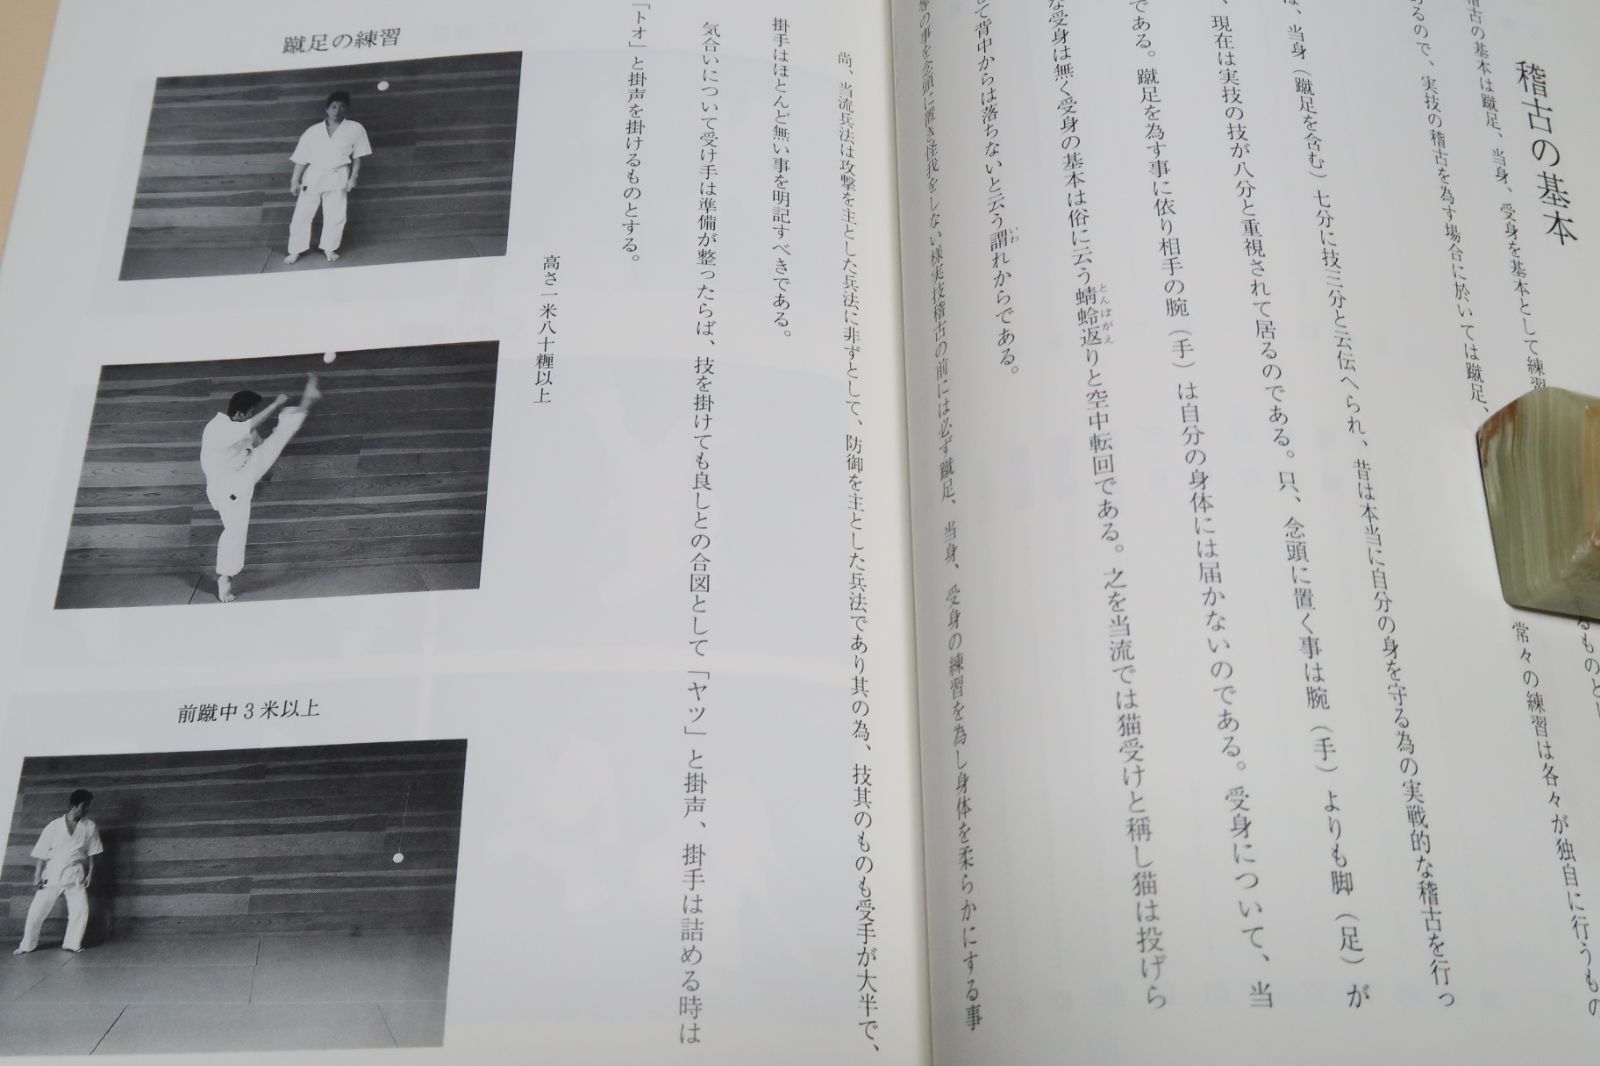 稽古の基本
稽古の基本は蹴足、当身、受身を基本として練習
常々の練習は各々が独自に行うもの
るので、実技の稽古を為す場合に於いては蹴足、
は、当身（蹴足を含む）七分に技三分と云伝へられ、昔は本当に自分の身を守る為の実戦的な稽古を行っ
、現在は実技の技が八分と重視されて居るのである。只、念頭に置く事は腕（手）よりも脚（足）が
である。蹴足を為す事に依り相手の腕（手）は自分の身体には届かないのである。受身について、当
な受身は無く受身の基本は俗に云う蜻蛉返りと空中転回である。之を当流では猫受けと稱し猫は投げら
とんぼがえ
て背中からは落ちないと云う謂れからである。
いわ
等の事を念頭に置き怪我をしない様実技稽古の前には必ず蹴足、当身、受身の練習を為し身体を柔らかにする事
尚、当流兵法は攻撃を主とした兵法に非ずとして、防御を主とした兵法であり其の為、技其のものも受手が大半で、
掛手はほとんど無い事を明記すべきである。
気合いについて受け手は準備が整ったらば、技を掛けても良しとの合図として「ヤツ」と掛声、掛手は詰める時は
「トオ」と掛声を掛けるものとする。
高さ一米八十糎以上
蹴足の練習
前蹴中3米以上